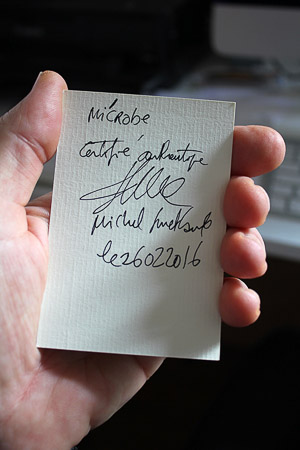 MICROBE
Certifié authentique
Michel
le 26022016